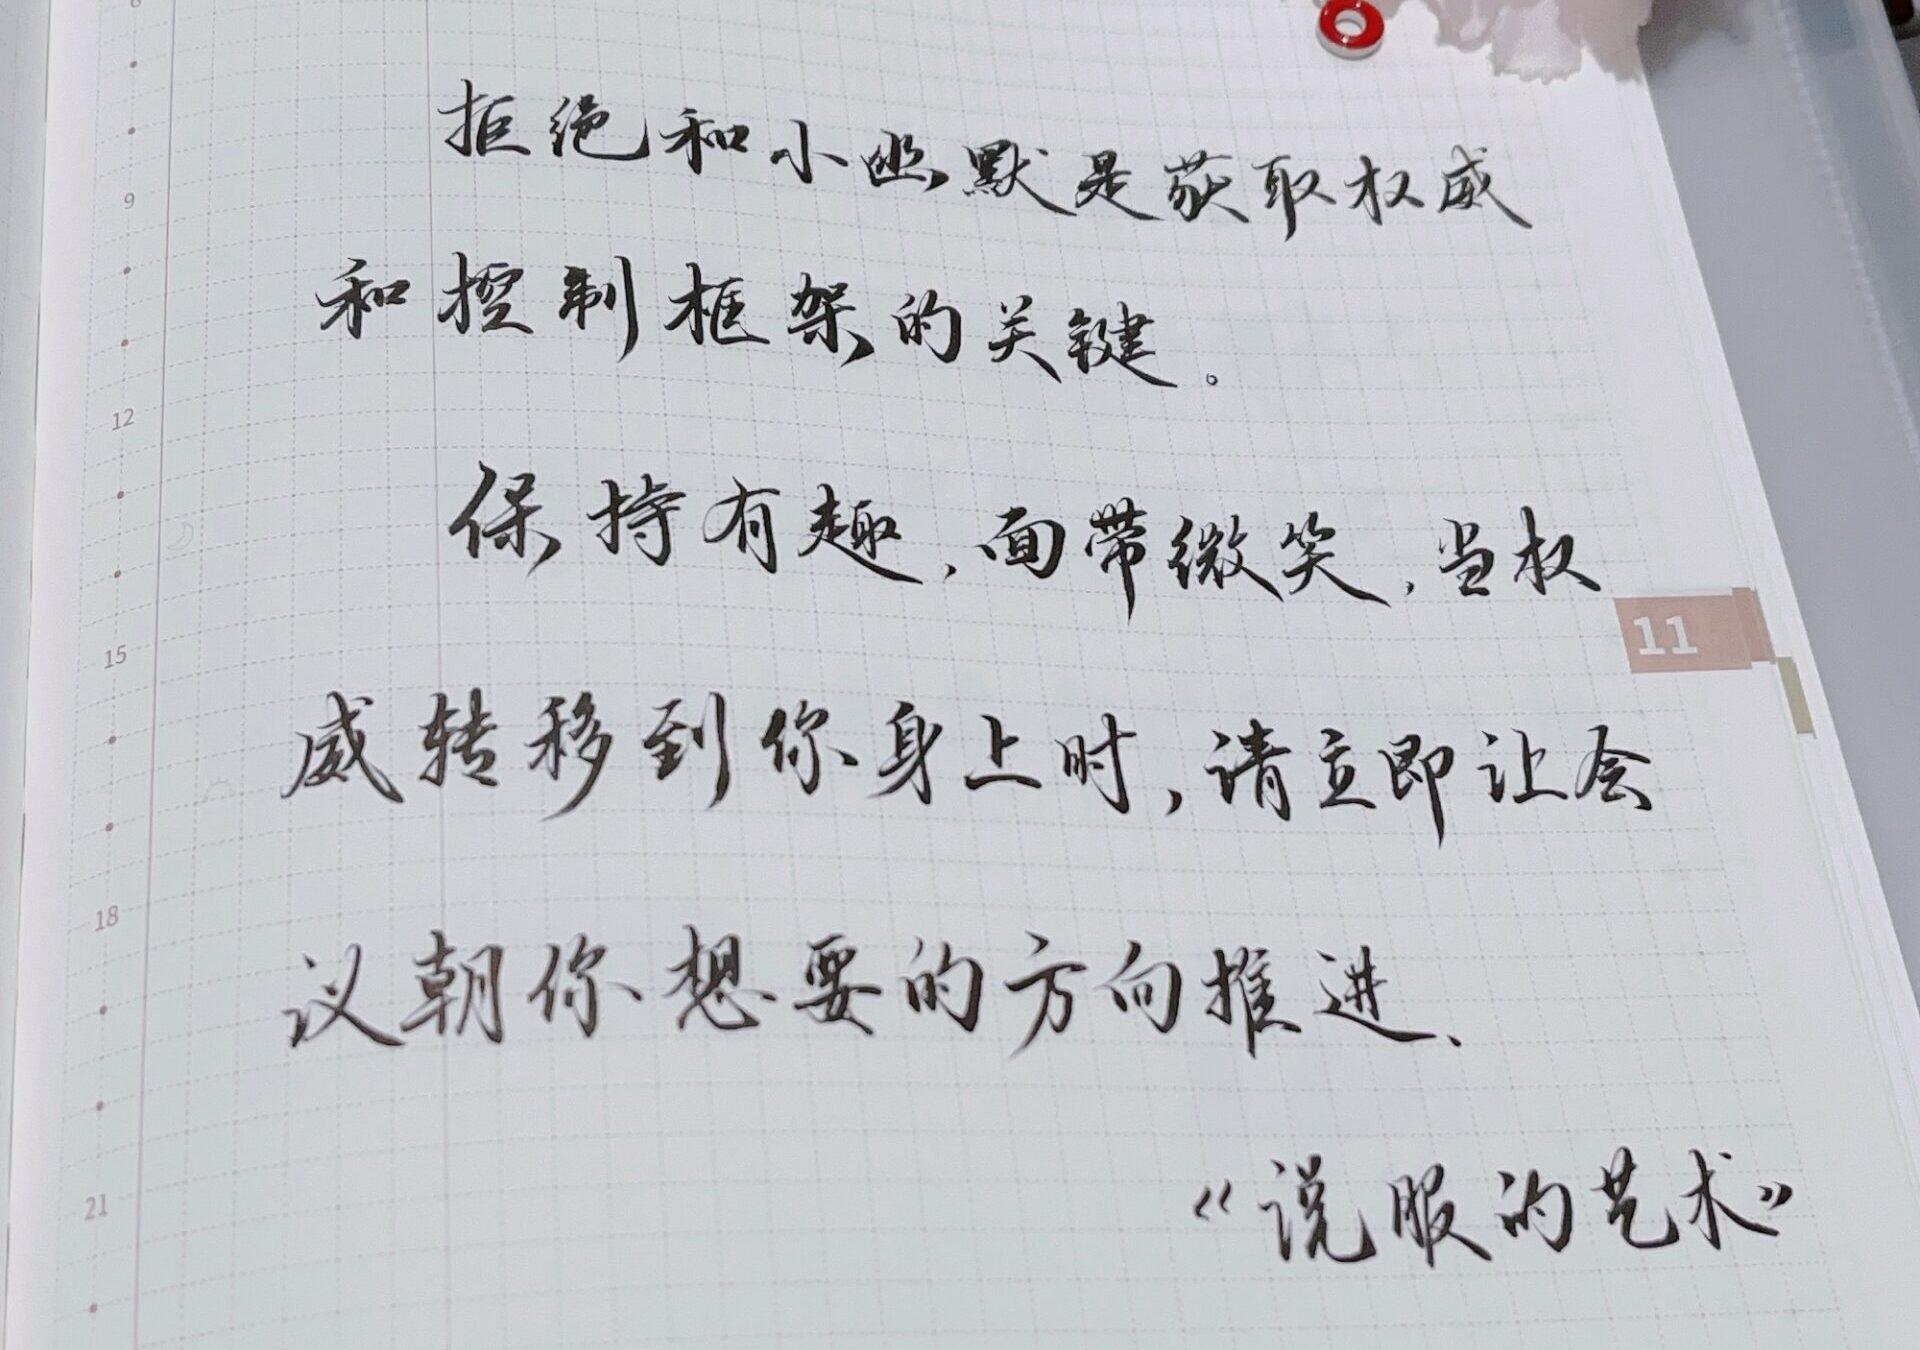 拒绝和小幽默是获取权威
和控制框架的关键。
保持有趣,面带微笑,当权
威转移到你身上时,请立即让会
议朝你想要的方向推进、
“说服的艺术”
9
12
15
18
21
11